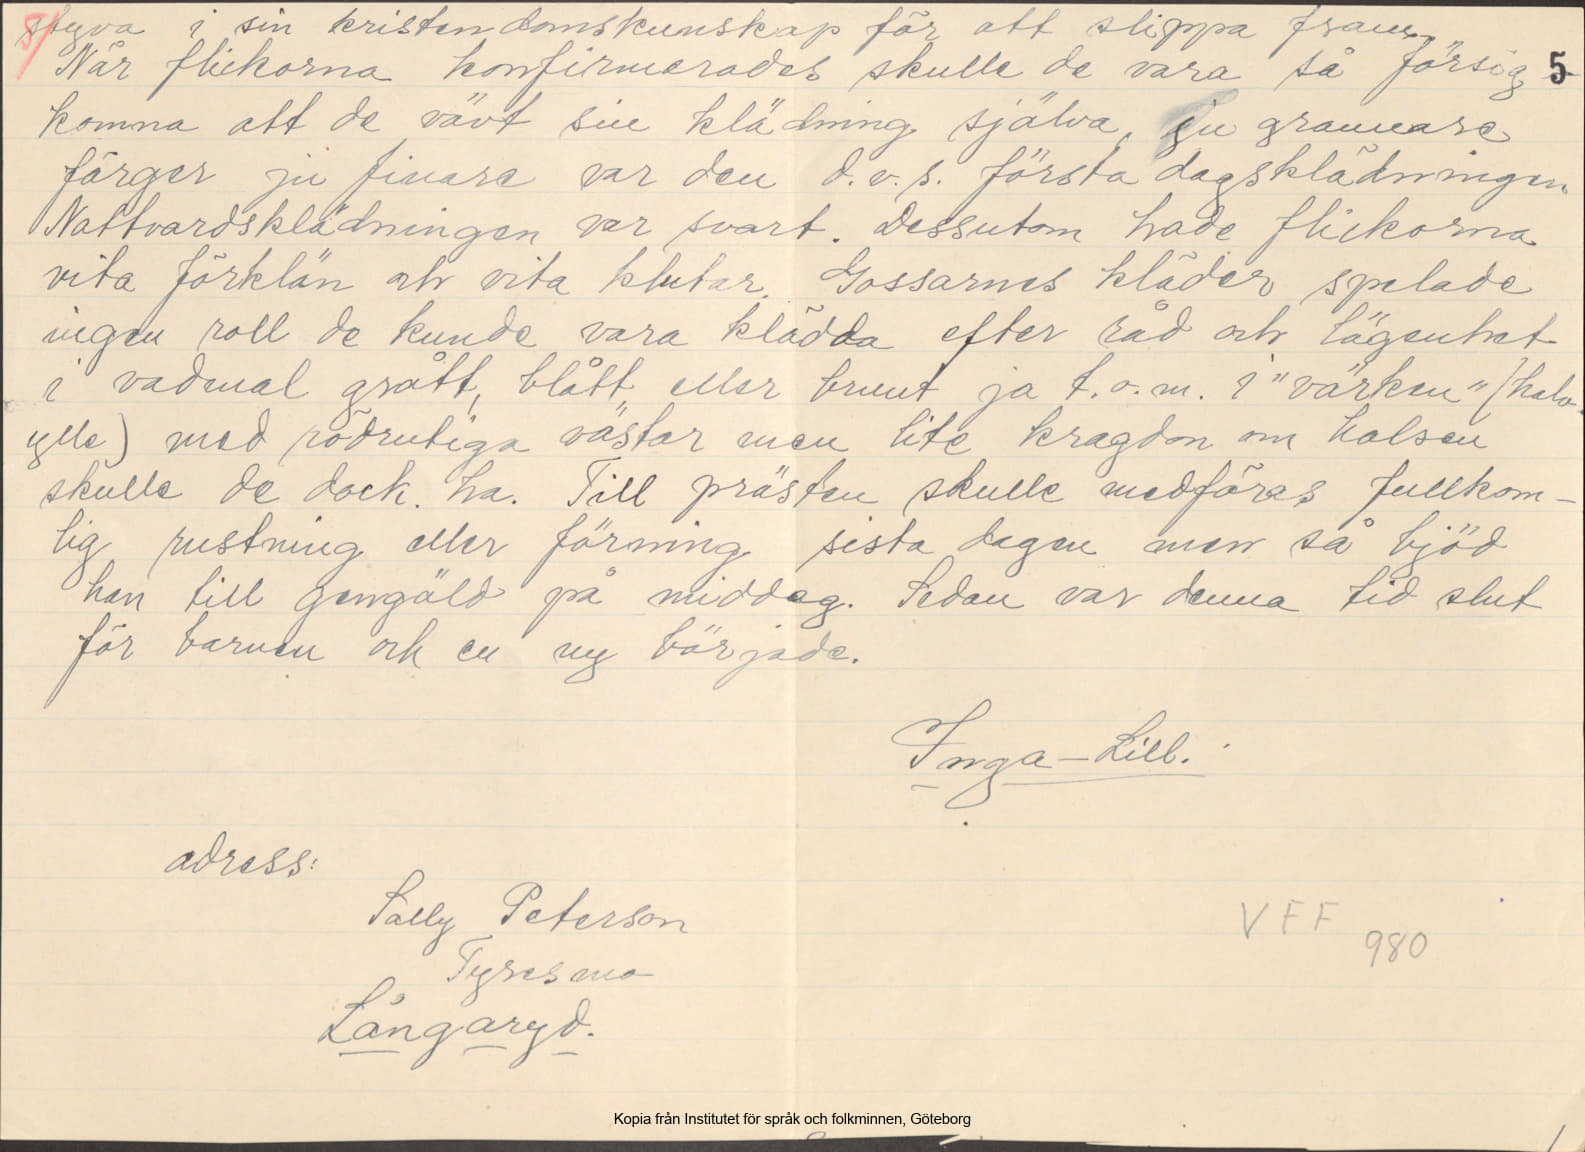 5/
styva i sin kristendomskunskap för att slippa fram.
När flickorna konfirmerades skulle de vara så försig 5
komna att de vävt sin klädning själva, ju grannare
färger ju finare var den d.v.s. första dagsklädningen.
Nattvardsklädningen var svart. Dessutom hade flickorna
vita förklän och vita klutar. Gossarnes kläder spelade
ingen roll de kunde vara klädda efter råd och lägenhet
i vadmal grått, blått, eller brunt ja t.o.m. i "värken" (halv
ylle) med rödrutiga västar men lite kragdon om halsen
skulle de dock. ha. Till prästen skulle medföras fullkom-
lig rustning eller förning sista dagen men så bjöd
han till gengäld på middag. Sedan var denna tid slut
för barnen och en ny började.
Inga-Lill.
adress:
Sally Peterson
Tyresmo
Långaryd.
VFF
980
Kopia från Institutet för språk och folkminnen, Göteborg